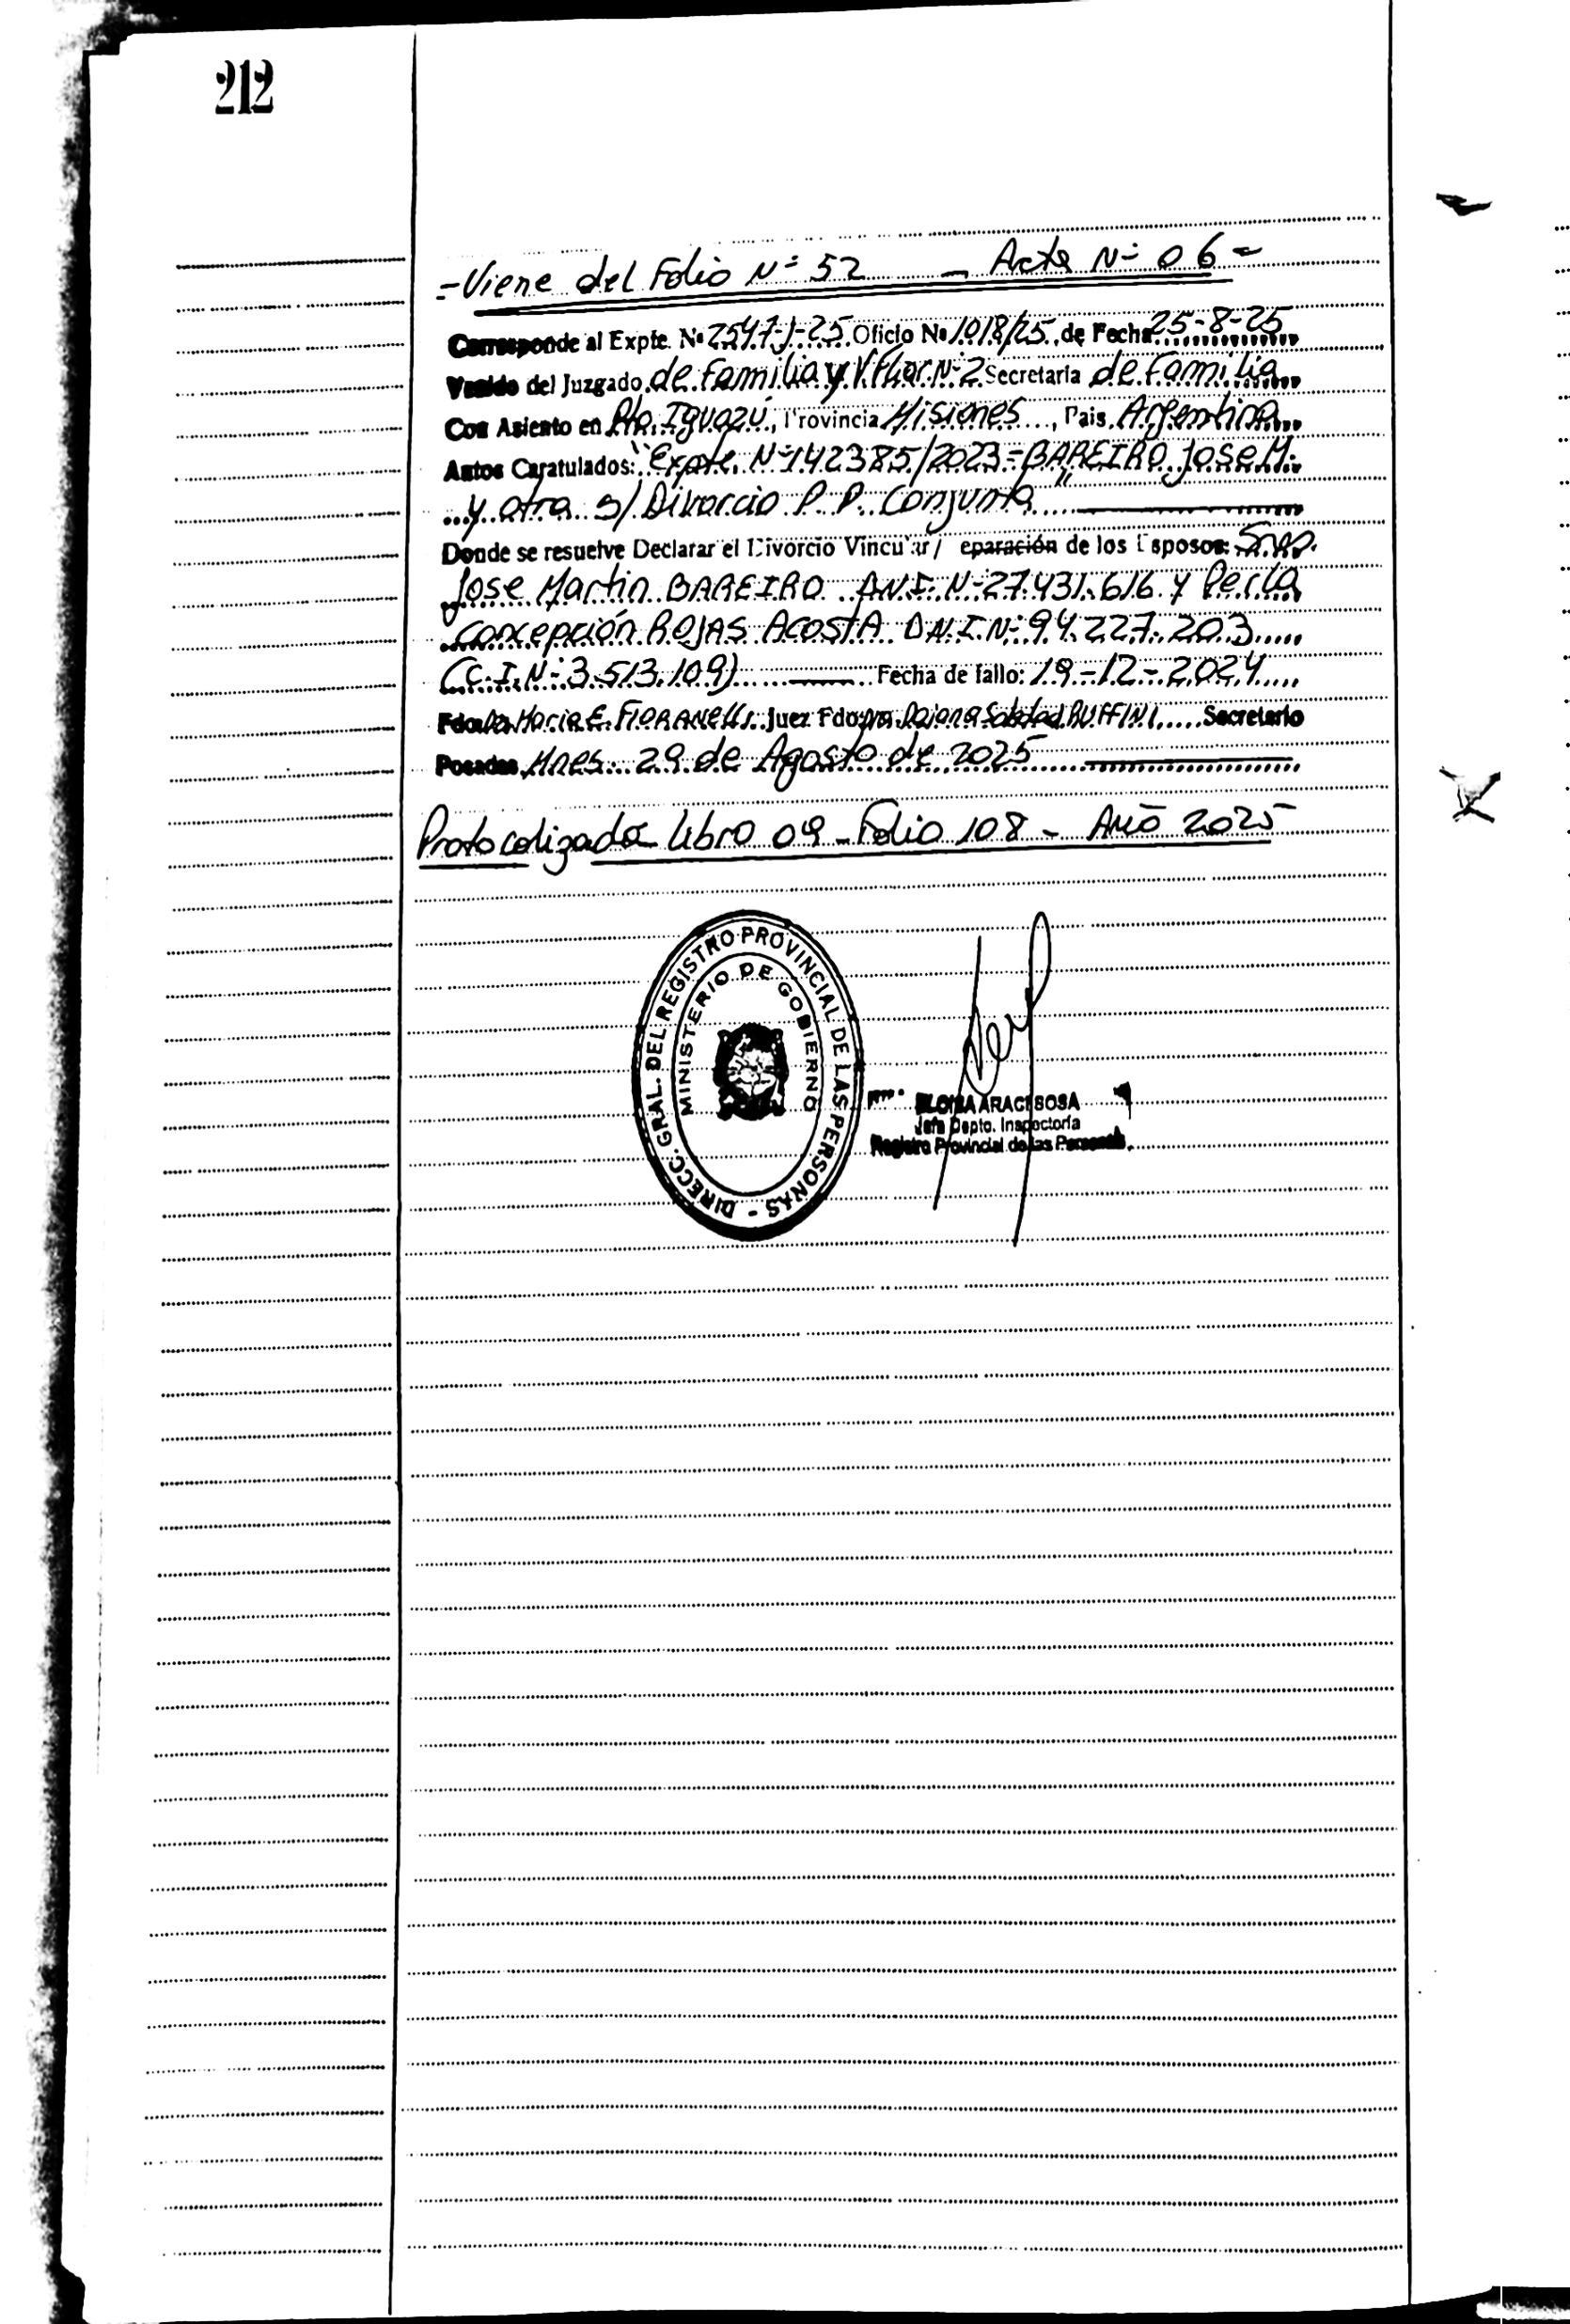 212
- Viene del Folio N° 52 - Acta N° 06 -
Corresponde al Expte. Nº 2547-J-25 Oficio Nº 1018/25, de Fecha 25-8-25
Venido del Juzgado de Familia y V. Fliar N° 2 Secretaria de Familia
Con Asiento en Pto. Iguazú, Provincia Misiones, Pais Argentina
Autos Caratulados: "Expte. N° 142385/2023 - BAREIRO Jose M.
y otra s/ Divorcio P. P. Conjunta"
Donde se resuelve Declarar el Divorcio Vincular / eparación de los Esposos:
Jose Martin BAREIRO D.N.I. N° 27.431.616 y Perla
Concepción ROJAS ACOSTA D.N.I. N° 94.227.203
(C.I. N° 3.513.109) Fecha de fallo: 19-12-2024
Fdo: Dra Maria E. FIORANELLI Juez Fdo: Dra. Daiana Soledad RUFFINI Secretario
Posadas, Mnes. 29 de Agosto de 2025
Protocolizado Libro 09 - Folio 108 - Año 2025
DIRECC. GRAL. DEL REGISTRO PROVINCIAL DE LAS PERSONAS -
MINISTERIO DE GOBIERNO
ARACI SOSA
Jefa Depto. Inspectoría
Registro Provincial de las Personas